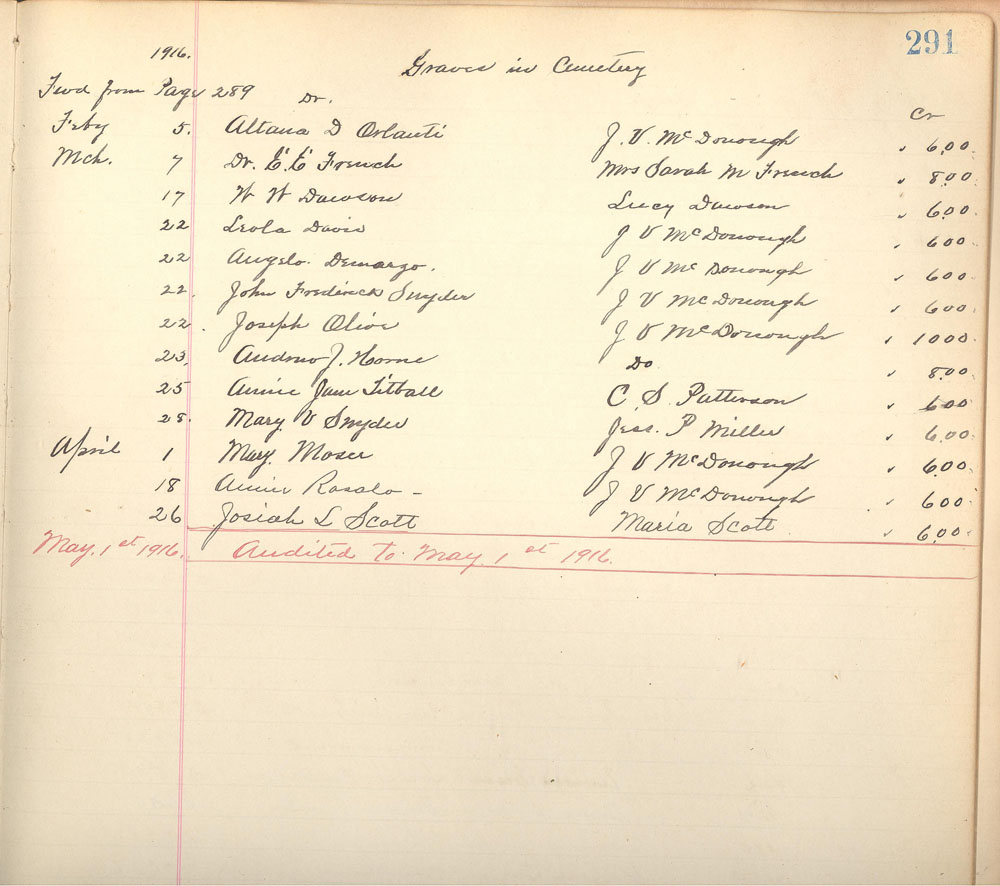 291
1916. Graves in Cemetery
Fwd from Page 289 Dr. Cr
Feby 5. Altana D Orlanti J. V. McDonough " 6.00
Mch. 7 Dr. E. E. French Mrs Sarah M French " 8.00
17 W W Dawson Lucy Dawson " 6.00
22 Leola Davis J V McDonough " 600
22 Angelo Demargo. J V McDonough " 600
22. John Frederick Snyder J V McDonough " 600
22. Joseph Olive J V McDonough " 1000
23. Andrew J. Horne Do " 8.00
25 Annie Jane Titball C. S. Patterson " 600
28. Mary V Snyder Jess. P Miller " 6.00
April 1 Mary Moser J V McDonough " 6.00
18 Annie Rosalo - J V McDonough " 600
26 Josiah L Scott Maria Scott " 6.00
May. 1st 1916. Audited to May. 1st 1916.